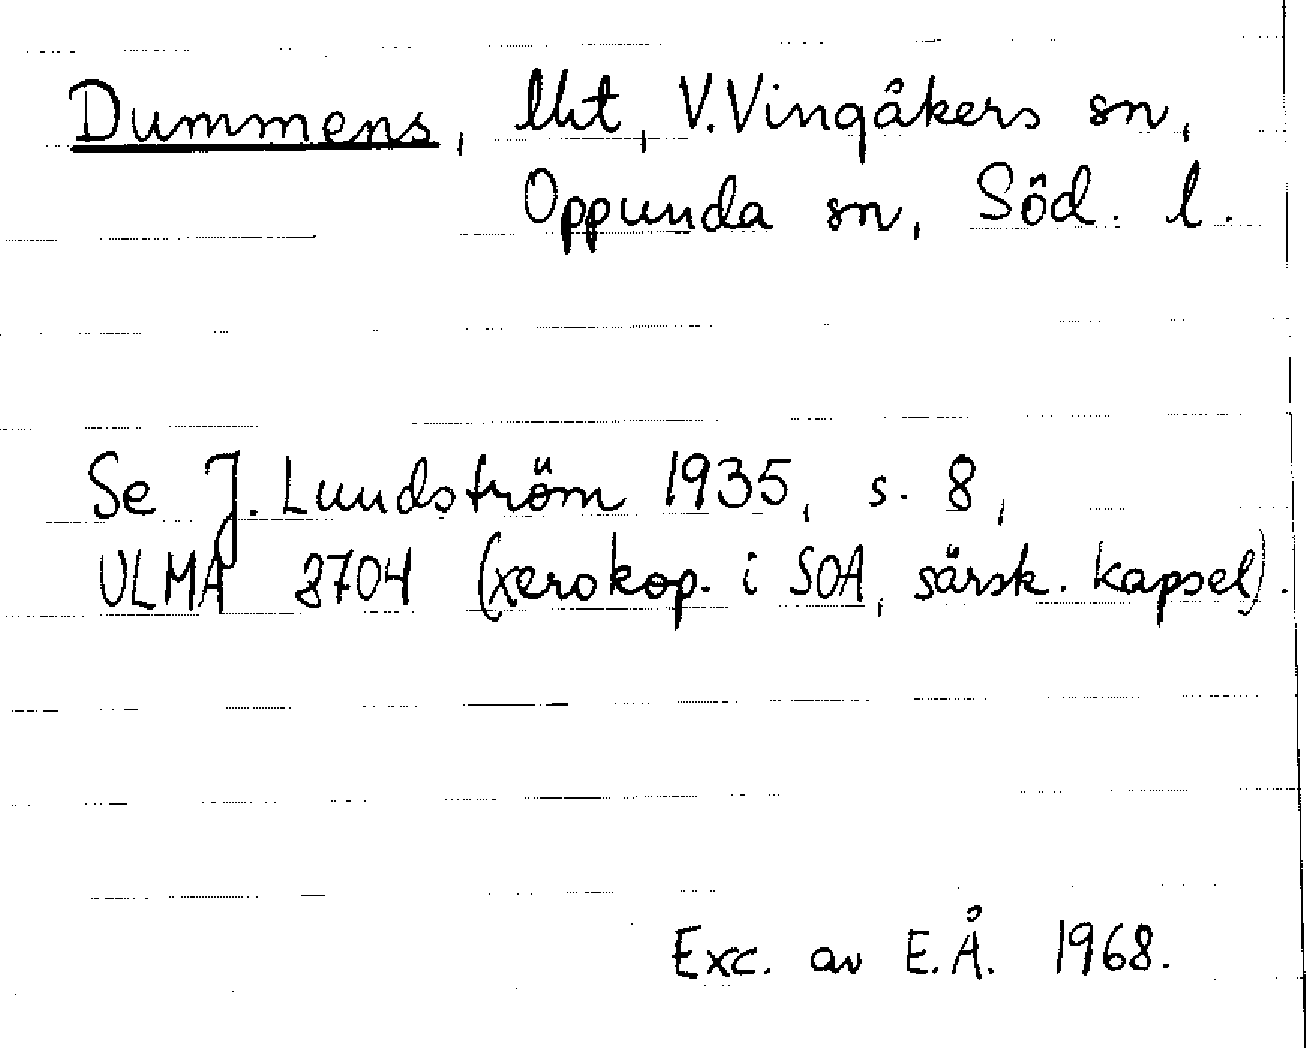 Dummens, lht, V. Vingåkers sn,
Oppunda sn, Söd. l.
Se J. Lundström 1935, s. 8,
ULMA 8704 (xerokop. i SOA, särsk. kapsel).
Exc. av E.Å. 1968.